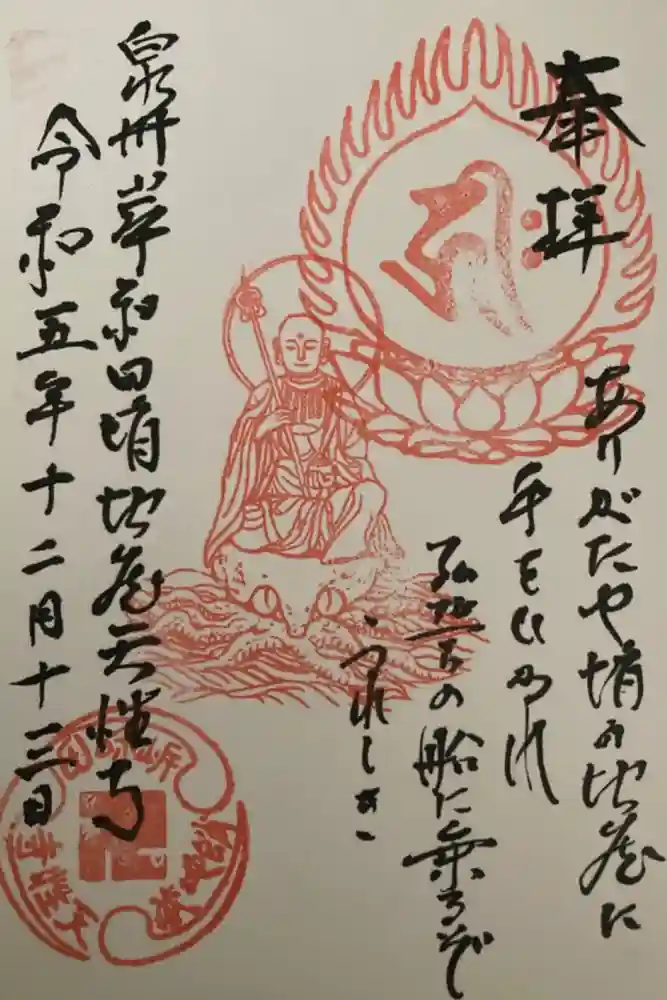 奉拝
ありがたや蛸の地蔵に
手をひかれ
弘誓の船に乗るぞ
うれしき
泉州岸和田蛸地蔵天性寺
令和五年十二月十三日
天性寺